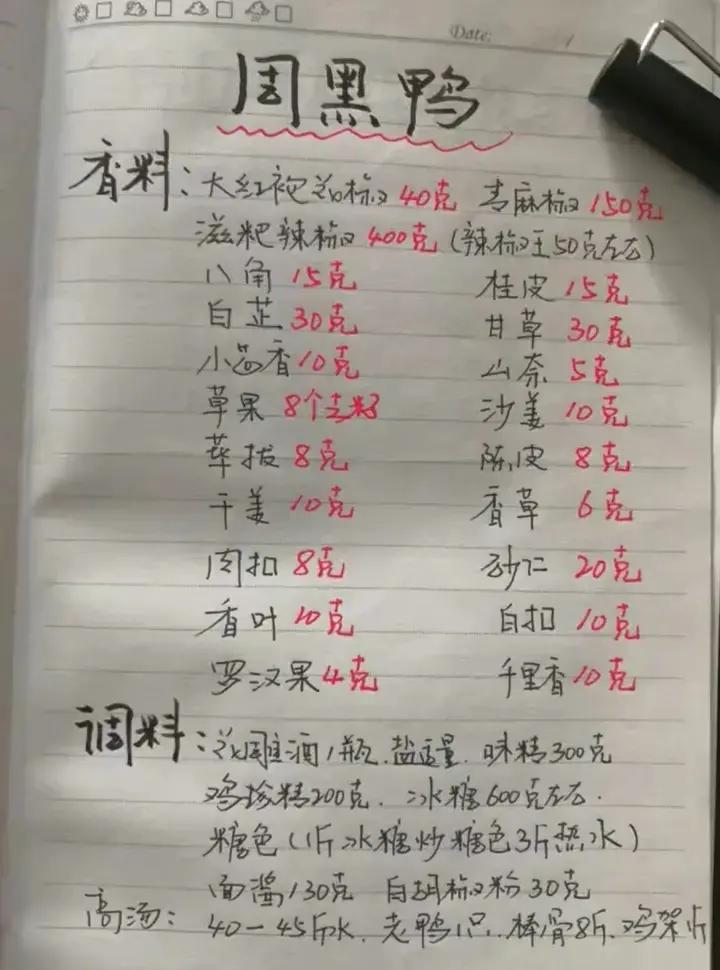 Date:
周黑鸭
香料：大红袍花椒 40克 青麻椒 150克
滋粑辣椒 400克（辣椒王50克左右）
八角 15克 桂皮 15克
白芷 30克 甘草 30克
小茴香 10克 山奈 5克
草果 8个去籽 沙姜 10克
荜拔 8克 陈皮 8克
干姜 10克 香草 6克
肉扣 8克 砂仁 20克
香叶 10克 白扣 10克
罗汉果 4克 千里香 10克
调料：花雕酒1瓶、盐适量、味精300克
鸡珍精200克、冰糖600克左右.
糖色（1斤冰糖炒糖色3斤热水）
面酱130克 白胡椒粉30克
高汤：40-45斤水、老鸭1只、棒骨8斤、鸡架